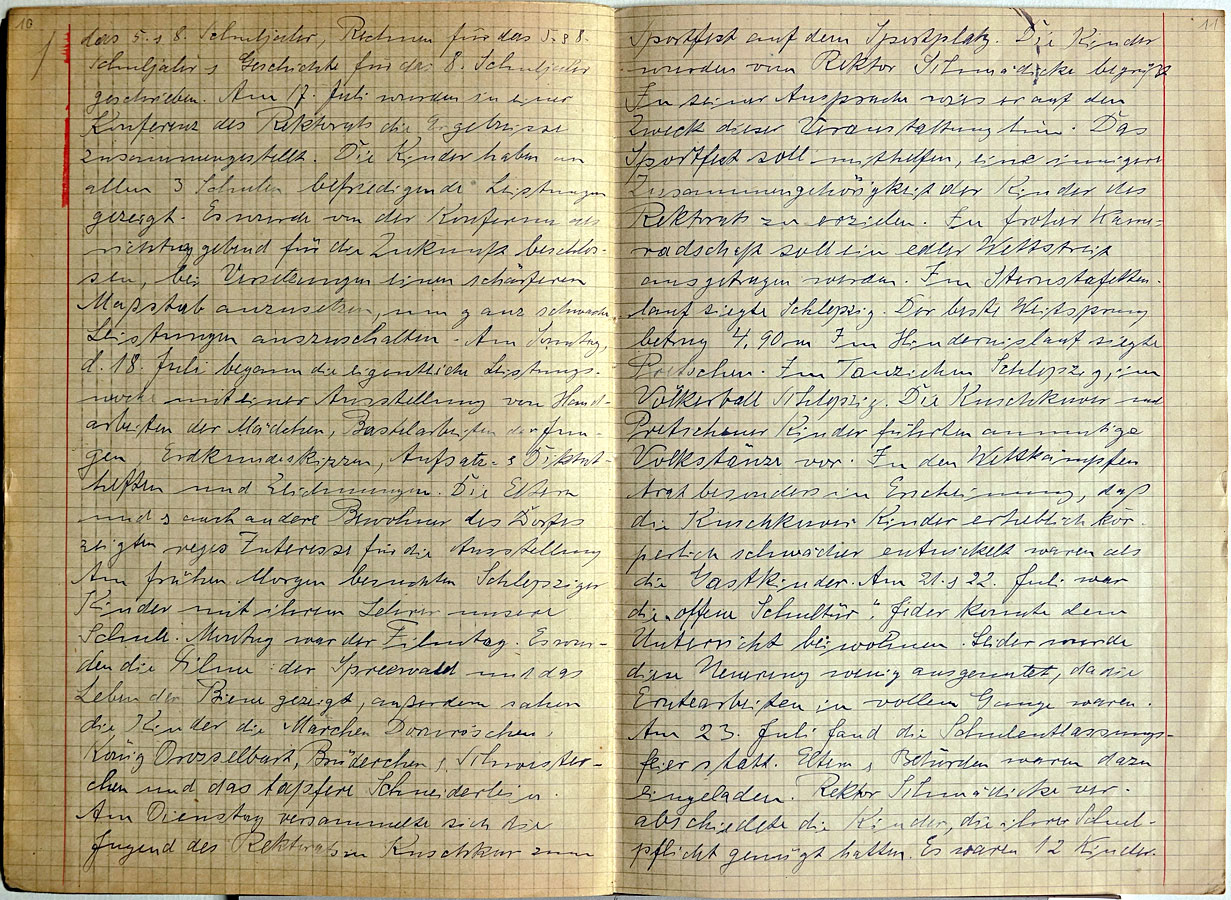 10
das 5. & 8. Schuljahr, Rechnen für das 5. & 8.
Schuljahr & Geschichte für das 8. Schuljahr
geschrieben. Am 17. Juli wurden in einer
Konferenz des Rektorats die Ergebnisse
zusammengestellt. Die Kinder haben an
allen 3 Schulen befriedigende Leistungen
gezeigt. Es wurde von der Konferenz als
richtunggebend für die Zukunft beschlos-
sen, bei Versetzungen einen schärferen
Maßstab anzusetzen, um ganz schwache
Leistungen auszuschalten. Am Sonntag,
d. 18. Juli begann die eigentliche Leistungs-
woche mit einer Ausstellung von Hand-
arbeiten der Mädchen, Bastelarbeiten der Jun-
gen, Erdkundeskizzen, Aufsatz- & Diktat-
heften und Zeichnungen. Die Eltern
und auch andere Bewohner des Dorfes
zeigten reges Interesse für die Ausstellung
Am frühen Morgen besuchten Schlepziger
Kinder mit ihrem Lehrer unsere
Schule. Montag war der Filmtag. Es wur-
den die Filme: der Spreewald und das
Leben der Biene gezeigt, außerdem sahen
die Kinder die Märchen Dornröschen,
König Drosselbart, Brüderchen & Schwester-
chen und das tapfere Schneiderlein.
Am Dienstag versammelte sich die
Jugend des Rektorats in Kuschkow zum
11
Sportfest auf dem Sportplatz. Die Kinder
wurden vom Rektor Schmädicke begrüßt
In seiner Ansprache wies er auf den
Zweck dieser Veranstaltung hin. Das
Sportfest soll mithelfen, eine innigere
Zusammengehörigkeit der Kinder des
Rektorats zu erzielen. In froher Kame-
radschaft soll ein edler Wettstreit
ausgetragen werden. Im Sternstafetten-
lauf siegte Schlepzig. Der beste Weitsprung
betrug 4,90 m Im Hindernislauf siegte
Pretschen. Im Tauziehen Schlepzig, im
Völkerball Schlepzig. Die Kuschkower und
Pretschener Kinder führten anmutige
Volkstänze vor. In den Wettkämpfen
trat besonders in Erscheinung, daß
die Kuschkower Kinder erheblich kör-
perlich schwächer entwickelt waren als
die Gastkinder. Am 21. & 22. Juli war
die „offene Schultür". Jeder konnte dem
Unterricht beiwohnen. Leider wurde
diese Neuerung wenig ausgenutzt, da die
Erntearbeiten in vollem Gange waren.
Am 23. Juli fand die Schulentlassungs-
feier statt. Eltern & Behörden waren dazu
eingeladen. Rektor Schmädicke ver-
abschiedete die Kinder, die ihrer Schul-
pflicht genügt hatten. Es waren 12 Kinder.